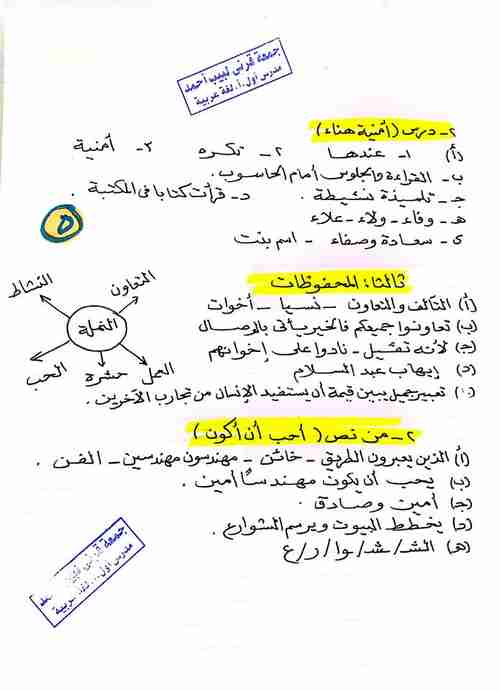 جمعة قرنى لبيب أحمد
مدرس أول أ. لغة عربية
٢- درس (أمنية هناء)
(أ) ١- عندها ٢- تكره ٣- أمنية
ب- القراءة والجلوس أمام الحاسوب.
ج- تلميذة نشيطة. د- قرأت كتابا فى المكتبة.
هـ- وفاء - ولاء - علاء
ى- سعادة وصفاء - اسم بنت
٥
ثالثا: المحفوظات
(أ) التآلف والتعاون - نسيا - أخوات
(ب) تعاونوا جميعكم فالخير يأتى بالوصال
(ج) لأنه ثقيل - نادوا على إخوانهم
(د) إيهاب عبد السلام
(هـ) تعبير جميل يبين قيمة أن يستفيد الإنسان من تجارب الآخرين.
النشاط
التعاون
النملة
الحب
حشرة
العمل
٢- من نص (أحب أن أكون)
(أ) الذين يعبرون الطريق - خائن - مهندسون مهندسين - الفن.
(ب) يحب أن يكون مهندسًا أمين.
(ج) أمين وصادق.
(د) يخطط البيوت ويرسم الشوارع.
(هـ) الشـ / شـ / وا / ر / ع
جمعة قرنى
مدرس أول أ. لغة عربية